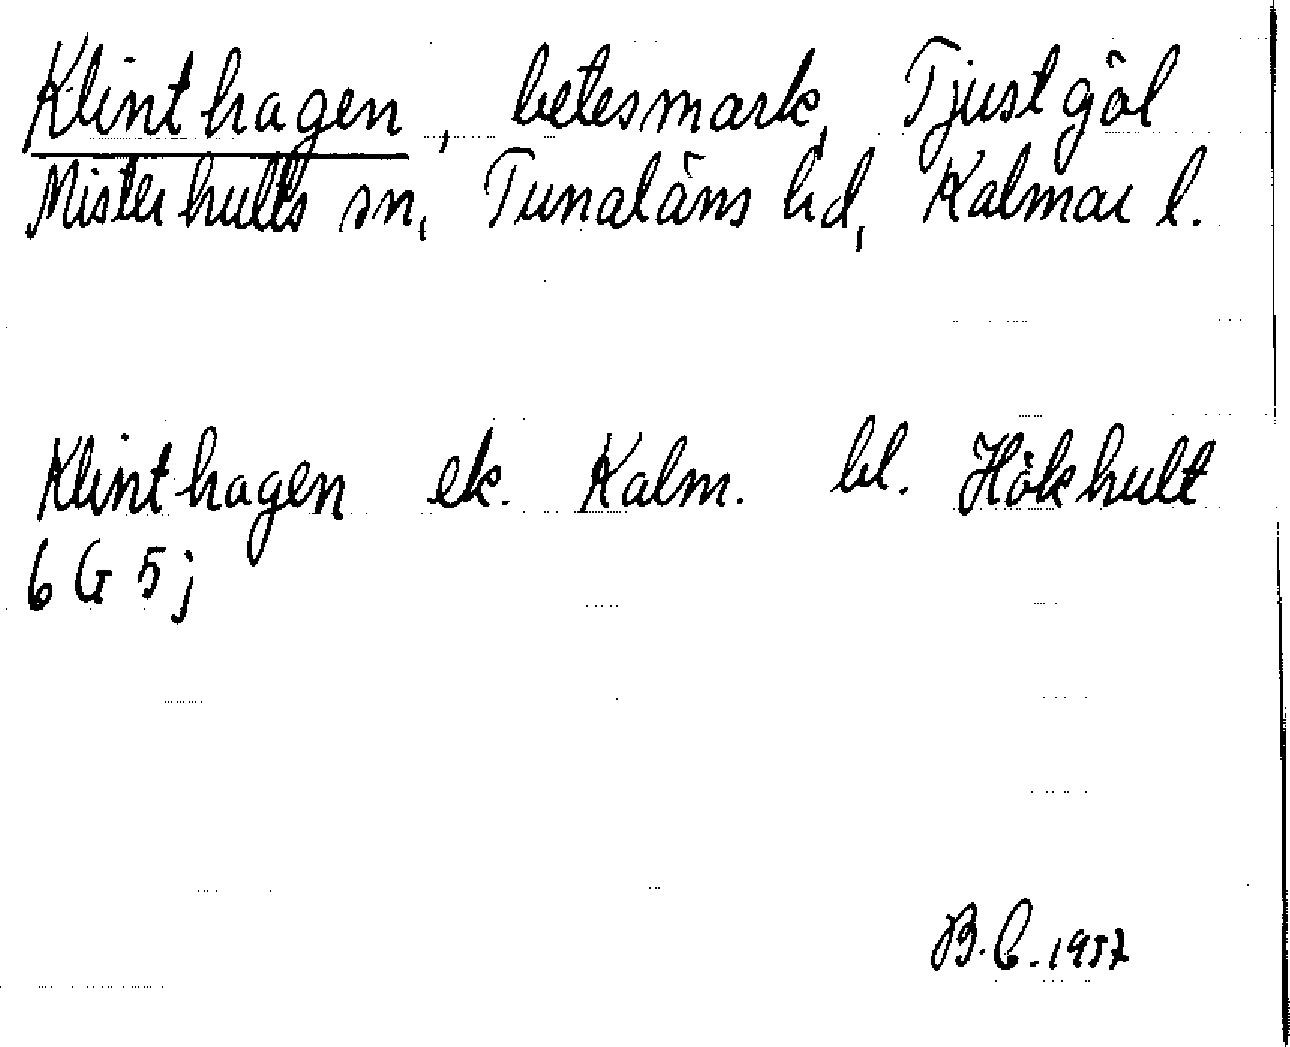 Klinthagen, betesmark, Tjustgöl
Misterhults sn, Tunaläns hd, Kalmar l.
Klinthagen ek. Kalm. bl. Hökhult
6 G 5 j
B.C. 1957